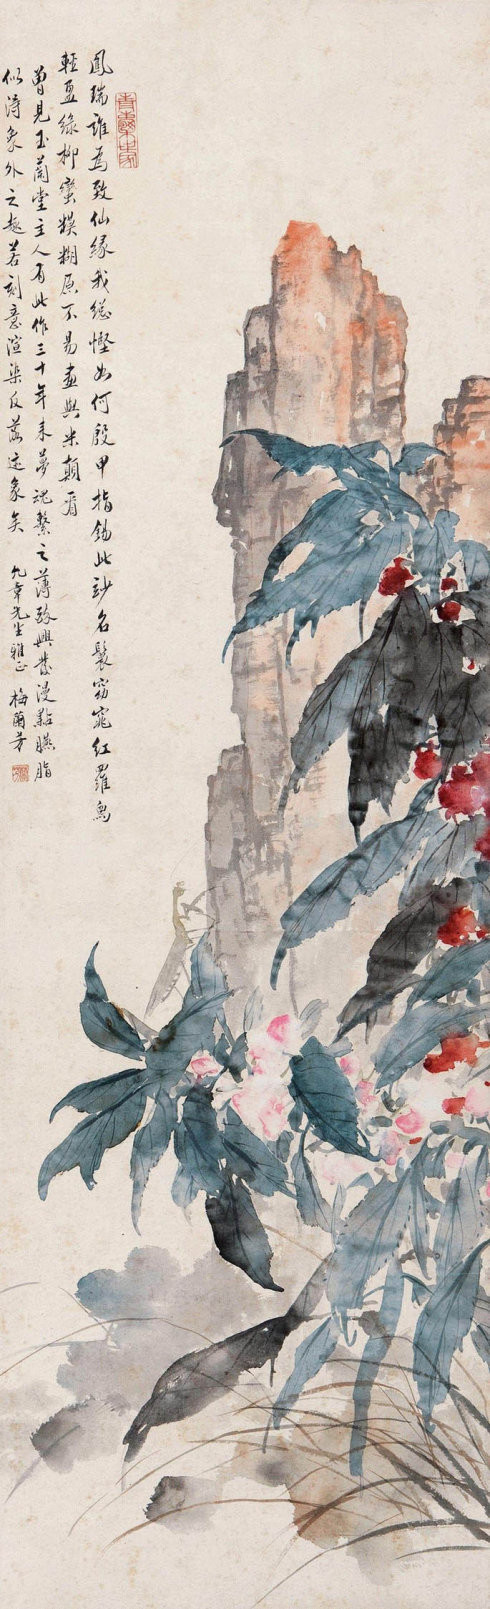 鳳瑞誰為致仙緣我總慳如何段甲指錫此訬名鬟窈窕紅羅島
輕盈綠柳蠻糢糊原不易畫與米顛看
曾見玉蘭堂主人有此作三十年來夢魂繫之薄醉興發漫點臙脂
似得象外之趣若刻意渲染反落迹象矣
九章先生雅正 梅蘭芳